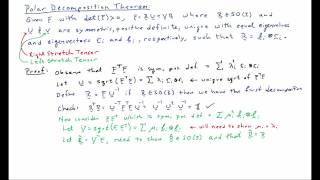 Polar Decomposition Theorem:
Given F with det(F)>0, F = RU = VR where R ∈ SO(3) and
U & V are symmetric, positive definite, unique with equal eigenvalues
and eigenvectors ei and li, respectively, such that li = Rei.
Right Stretch Tensor
Left Stretch Tensor
Proof: Observe that FᵀF is sym, pos def = Σ λi ei⊗ei
Let U = sqrt(FᵀF) = Σ λi ei⊗ei ← unique sqrt of FᵀF
Define R = FU⁻¹ if R ∈ SO(3) then we have the first decomposition
Check: RᵀR = U⁻ᵀFᵀFU⁻¹
Now consider FFᵀ which is sym, pos def = Σ μi li⊗li
Let V = sqrt(FFᵀ) = Σ μi li⊗li ← will need to show μi = λi
Let R = V⁻¹F, need to show R ∈ SO(3) and that R = R